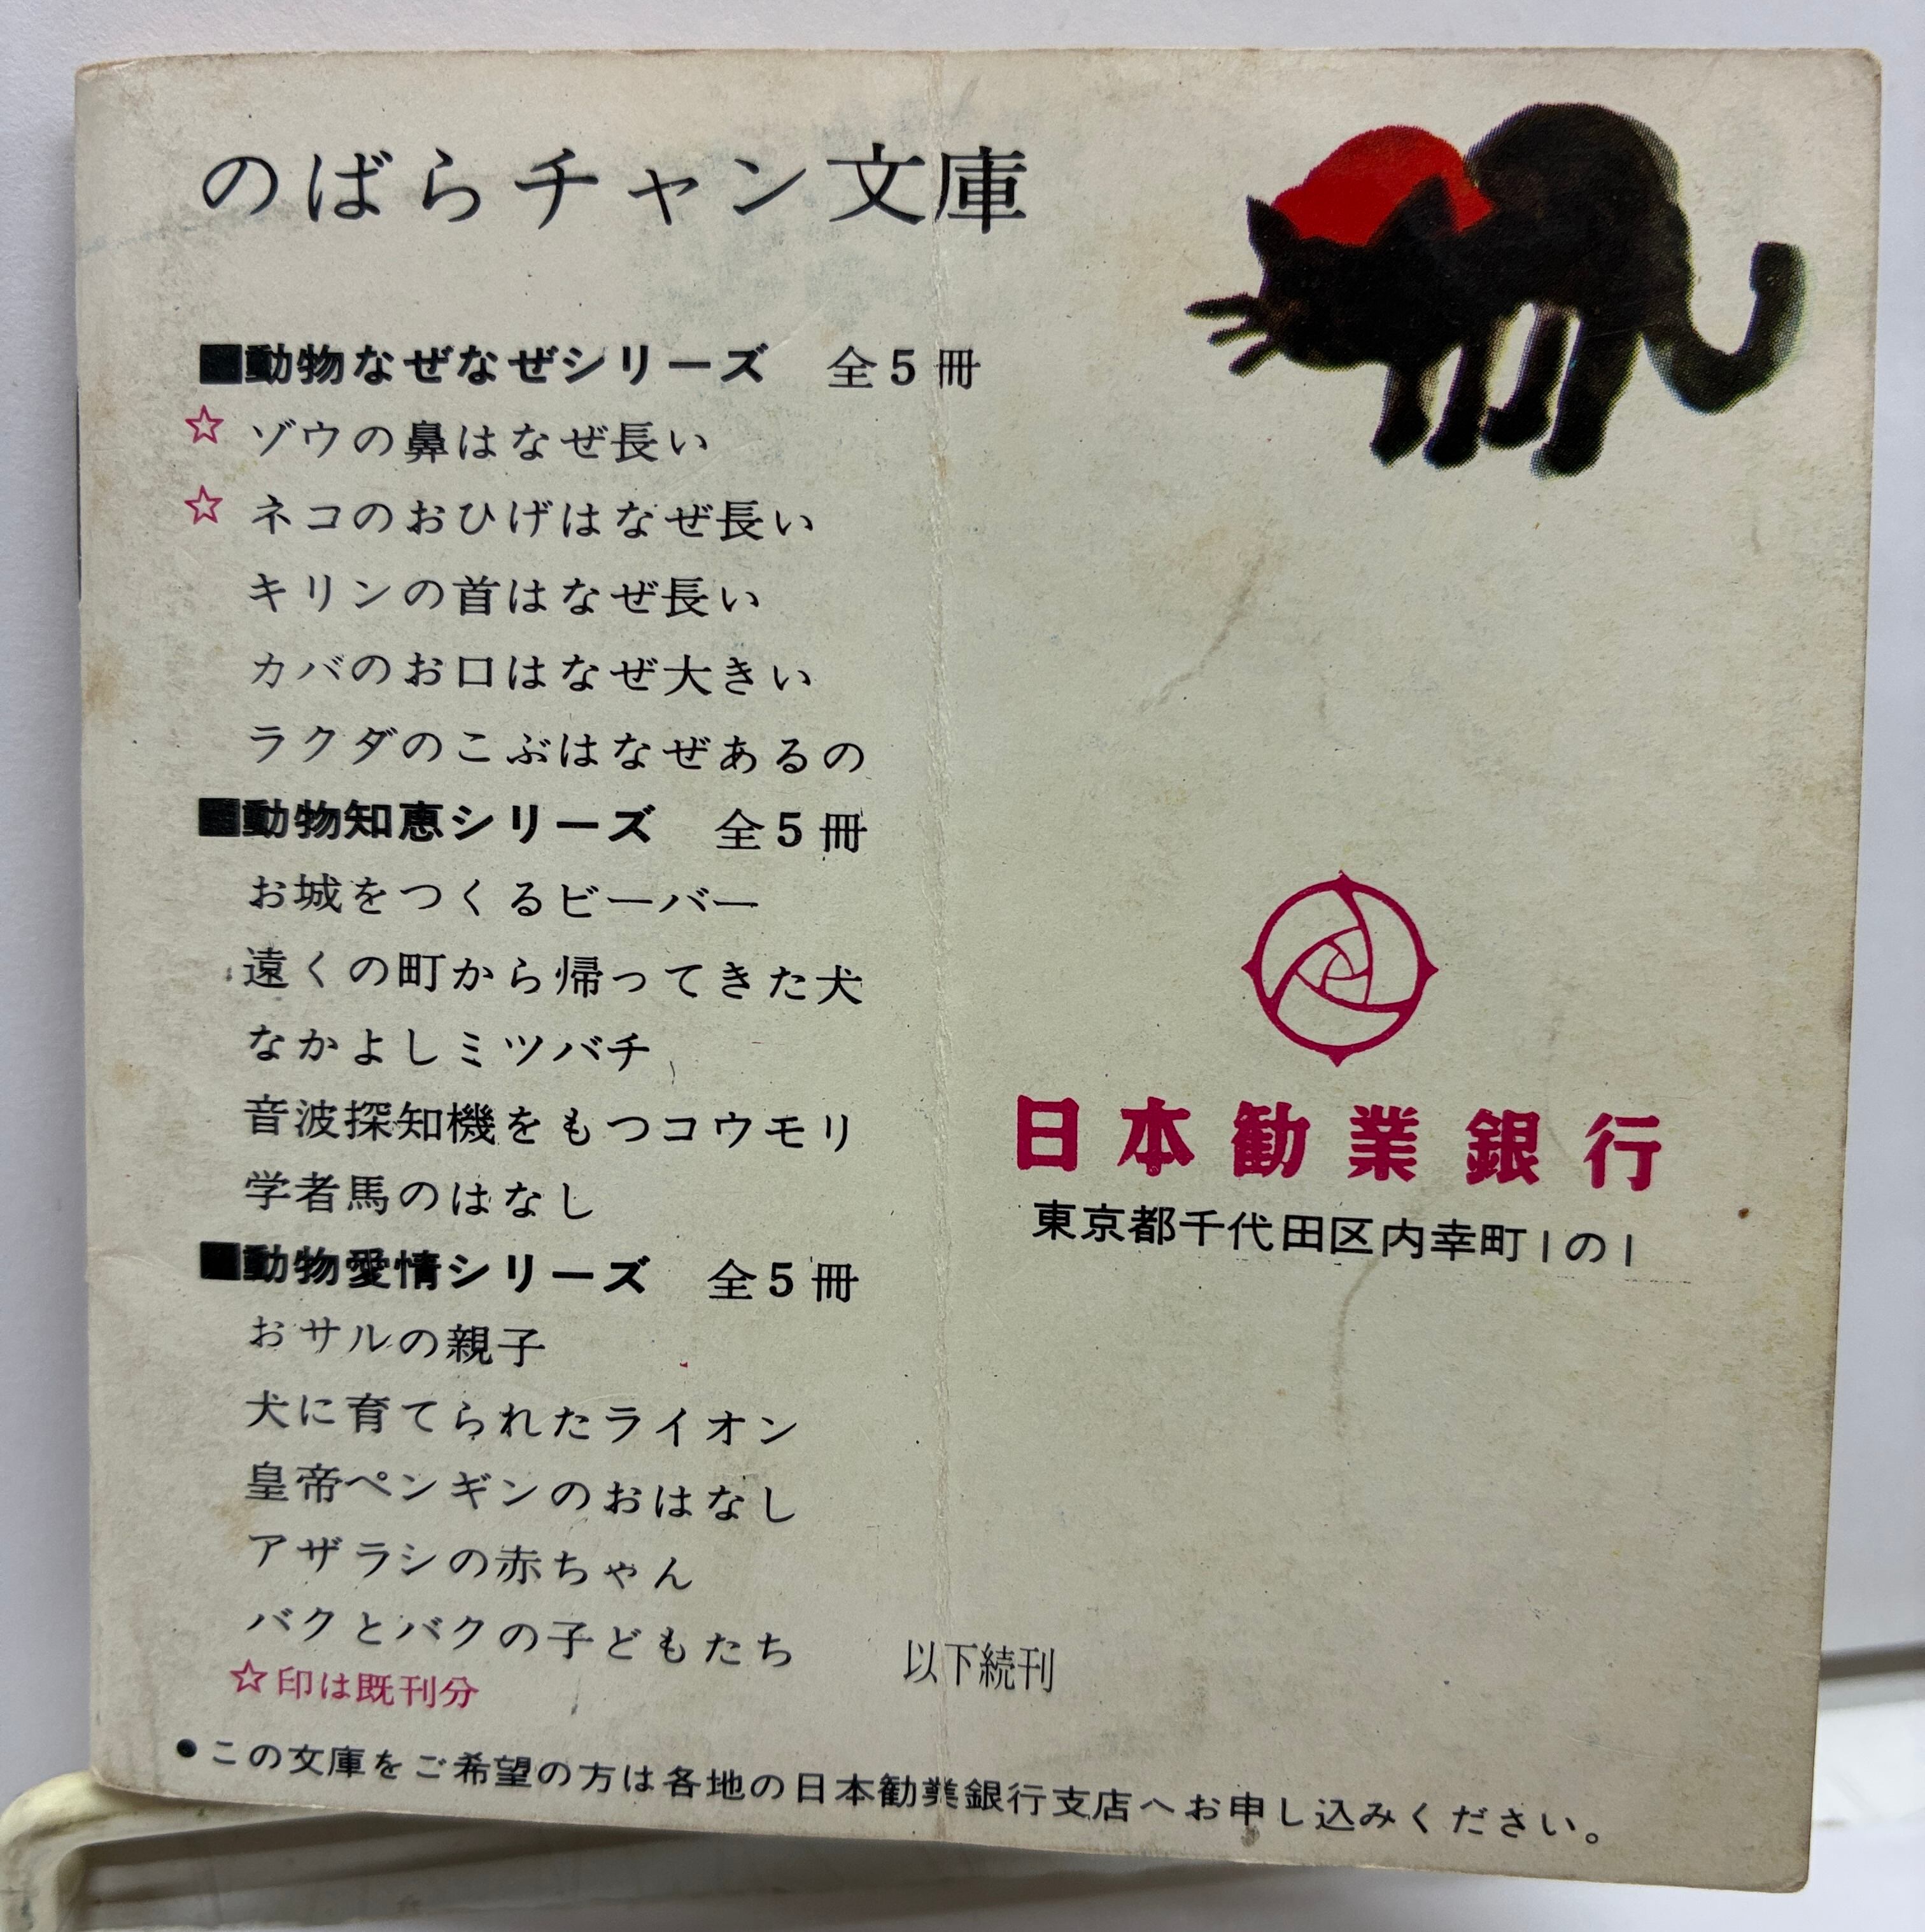 のばらチャン文庫
■動物なぜなぜシリーズ　全5冊
☆ ゾウの鼻はなぜ長い
☆ ネコのおひげはなぜ長い
キリンの首はなぜ長い
カバのお口はなぜ大きい
ラクダのこぶはなぜあるの
■動物知恵シリーズ　全5冊
お城をつくるビーバー
遠くの町から帰ってきた犬
なかよしミツバチ
音波探知機をもつコウモリ
学者馬のはなし
■動物愛情シリーズ　全5冊
おサルの親子
犬に育てられたライオン
皇帝ペンギンのおはなし
アザラシの赤ちゃん
バクとバクの子どもたち
以下続刊
☆印は既刊分
日本勧業銀行
東京都千代田区内幸町1の1
●この文庫をご希望の方は各地の日本勧業銀行支店へお申し込みください。